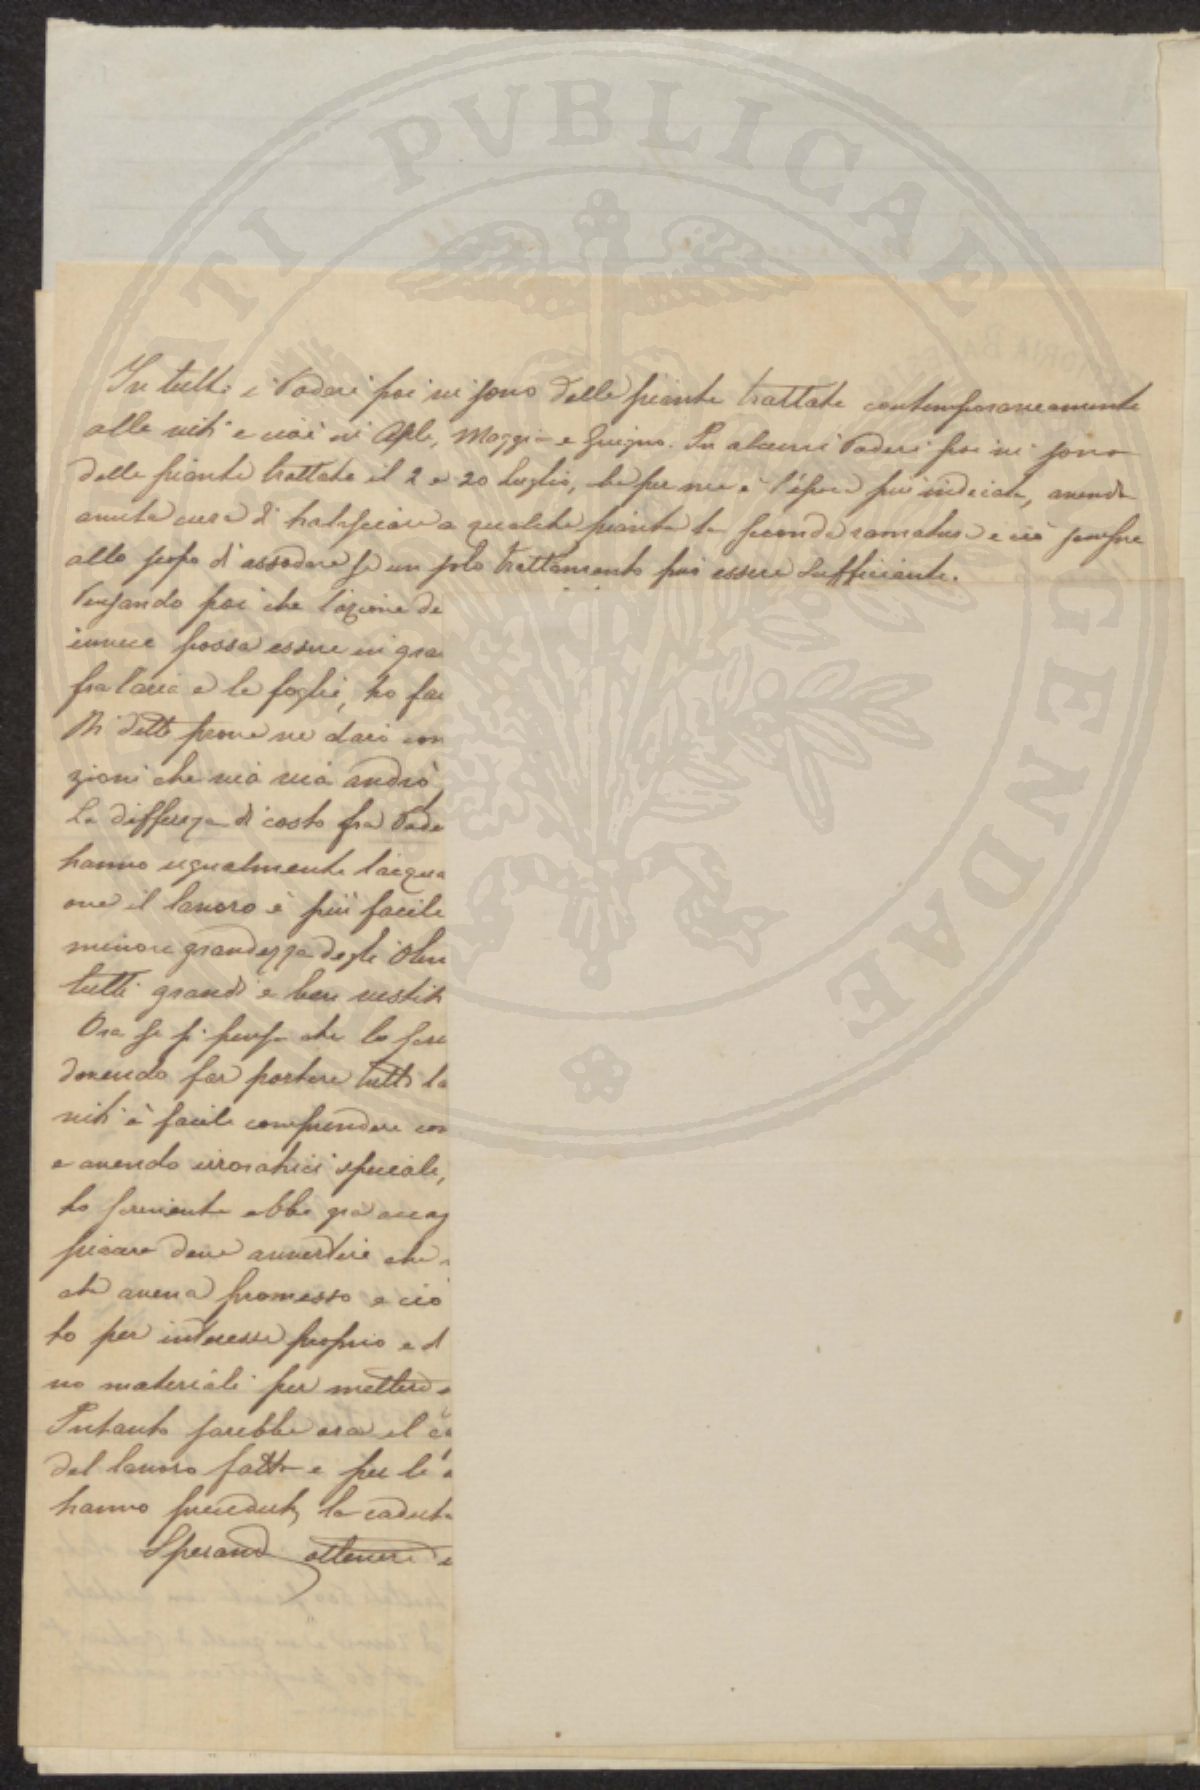 PVBLICAE
TI
GENDAE
In tutti i Poderi poi vi sono delle piante trattate contemporaneamente
alle viti e cioè in Aple, Maggio e Giugno. In alcuni Poderi poi vi sono
delle piante trattate il 2 e 20 luglio, che per me è l'epoca più indicata, avendo
avuta cura di tralasciare a qualche pianta la seconda ramatura e ciò sempre
allo scopo di assodare se un solo trattamento può essere sufficiente.
Pensando poi che l'azione de
invece possa essere in gra
fra l'aria e le foglie, ho fa
Di dette prove ne darò con
zioni che via via andrò
La differenza di costo fra Pode
hanno ugualmente l'acqua
ove il lavoro è più facile
minore grandezza degli Oliv
tutti grandi e ben vestiti
Ora se si pensa che lo
dovendo far portare tutti la
viti è facile comprendere con
e avendo irroratrici speciali,
to
piacere deve avvertire che
che aveva promesso e ciò
to per interesse proprio e d
no materiali per mettere
Intanto sarebbe ora il
del lavoro fatto e per le
hanno preceduto la caduta
Sperando ottenere